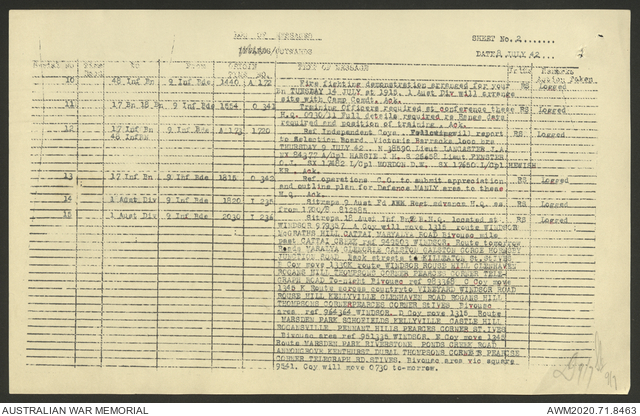 LOG OF MESSAGES
SHEET No. 2.......
INWARDS/OUTWARDS
DATE 8 JULY 42
Serial No Time Date To From ORIGIN TIME NO. TEXT OF MESSAGE Write Remarks Action Taken
10 48 Inf Bn 9 Inf Bde 1440 A 172 Fire fighting demonstration arranged for your RS Logged
Bn TUESDAY 14 JULY at 1915. 1 Aust Div will arrange
site with Camp Comdt. Ack.
11 17 Bn 18 Bn 9 Inf Bde 1554 O 341 Training Officers required at conference these RS Logged
H.Q. 0930/11 Full details required re Range
required and position of training. Ack.
12 17 Bn 18 Inf Bde 9 Inf Bde A 173 1720 Ref Independent Coys. Following will report RS Logged
48 Inf to Selection Board. Victoria Barracks
THURSDAY 9 JULY 42. Lieut LANCASTER I.A.
NX 84377 A/Cpl J.H. Lieut
O.J.
13 17 Inf Bn 9 Inf Bde 1815 O 342 Ref operations C.O. to submit appreciation RS Logged
and outline plan for Defence MANLY area to these
H.Q. Ack.
14 1 Aust Div 9 Inf Bde 1820 I 235 Sitreps 9 Aust Fd Rest advance H.Q. as RS Logged
from 1700/8 812581
15 1 Aust Div 9 Inf Bde 2030 I 236 Sitreps 18 Aust Inf Bn B.H.Q. located at RS Logged
WINDSOR 979387 A Coy will move 1315 route WINDSOR
McGRATHS HILL CATTAI ROAD Bivouac mile
east CATTAI CREEK ref 949501 WINDSOR. Route tomorrow
GLENORIE GALSTON GALSTON GORGE HORNSBY
JUNCTION ROAD back streets to KILLEATON St. ST IVES
B Coy move 1330K route WINDSOR ROUSE HILL GLENHAVEN
ROGANS HILL THOMPSONS CORNER PEARCES CORNER TELE-
GRAPH ROAD To-night Bivouac ref 983368 C Coy move
1345 K Route across country to VINEYARD WINDSOR ROAD
ROUSE HILL KELLYVILLE GLENHAVEN ROAD ROGANS HILL
THOMPSONS CORNER PEARCES CORNER St.IVES. Bivouac
area ref 964364 WINDSOR. D Coy move 1315 Route
MARSDEN PARK SCHOFIELDS KELLYVILLE CASTLE HILL
ROGANSVILLE PENNANT HILLS PEARCES CORNER ST.IVES
Bivouac area ref 951335 WINDSOR. Coy move 1345
Route MARSDEN PARK RIVERSTONE PONDS CREEK ROAD
ANNANGROVE KENTHURST DURAL THOMPSONS CORNER PEARCES
CORNER TELEGRAPH RD ST.IVES. Bivouac area vic square
9541. Coy will move 0730 to-morrow.
AUSTRALIAN WAR MEMORIAL
AWM2020.71.8463